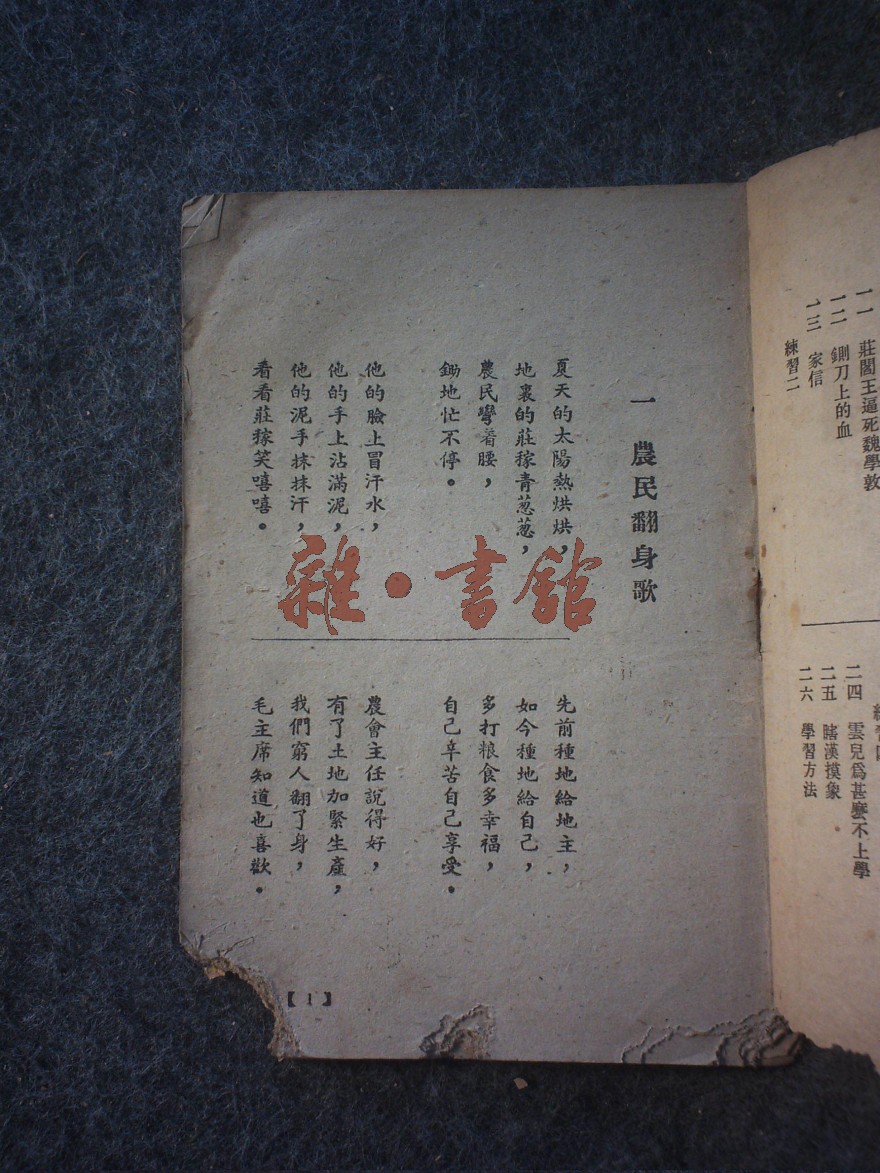 一一　莊閻王逼死魏學敦
一二　鍘刀上的血
一三　家信
練習二
二四　雲兒爲甚麼不上學
二五　瞎漢摸象
二六　學習方法
一　農民翻身歌
夏天的太陽熱烘烘，
地裏的莊稼青葱葱，
農民彎着腰，
鋤地忙不停。
他的臉上冒汗水，
他的手上沾滿泥，
他的泥手抹抹汗，
看看莊稼笑嘻嘻。
先前種地給地主，
如今種地給自己，
多打粮食多幸福，
自己辛苦自己享受。
農會主任說得好，
有了土地加緊生產，
我們窮人翻了身，
毛主席知道也喜歡。
【1】
雜·書館